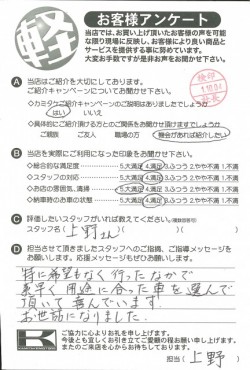 軽
お客様アンケート
当店では、お買い上げ頂いたお客様の声を可能
な限り現場に反映し、お客様により良い商品と
サービスを提供する事に努めています。
大変お手数ですが是非お声をお聞かせ下さい。
A 当店はご紹介を大切にしております。
ご紹介キャンペーンについてお聞かせ下さい。
◇カミタケご紹介キャンペーンのご説明はありましたでしょうか
はい いいえ
◇具体的にご紹介頂ける方とのご関係をお聞かせ頂けますでしょうか
ご親族 ご友人 職場の方 機会があれば紹介したい
B 当店を実際にご利用になった印象をお聞かせ下さい。
◇総合的な満足度 5.大満足 4.満足 3.ふつう 2.やや不満 1.不満
◇スタッフの対応 5.大満足 4.満足 3.ふつう 2.やや不満 1.不満
◇お店の雰囲気、清掃 5.大満足 4.満足 3.ふつう 2.やや不満 1.不満
◇納車時のお車の状態 5.大満足 4.満足 3.ふつう 2.やや不満 1.不満
C 評価したいスタッフがいれば教えてください。(複数回答可)
スタッフ名( 上野さん )( )( )
D 担当させて頂きましたスタッフへのご指摘、ご指導メッセージを
お願いします。応援メッセージもぜひお願いします!
特に希望もなく行ったなかで
素早く用途に合った車を選んで
頂いて喜んでいます
お世話になりました。
K
ご協力に心よりお礼を申し上げます。
今後とも宜しくお引き立てご愛顧の程お願い申し上げます。
またのご来店を心からお待ちしております。
担当( 上野 )